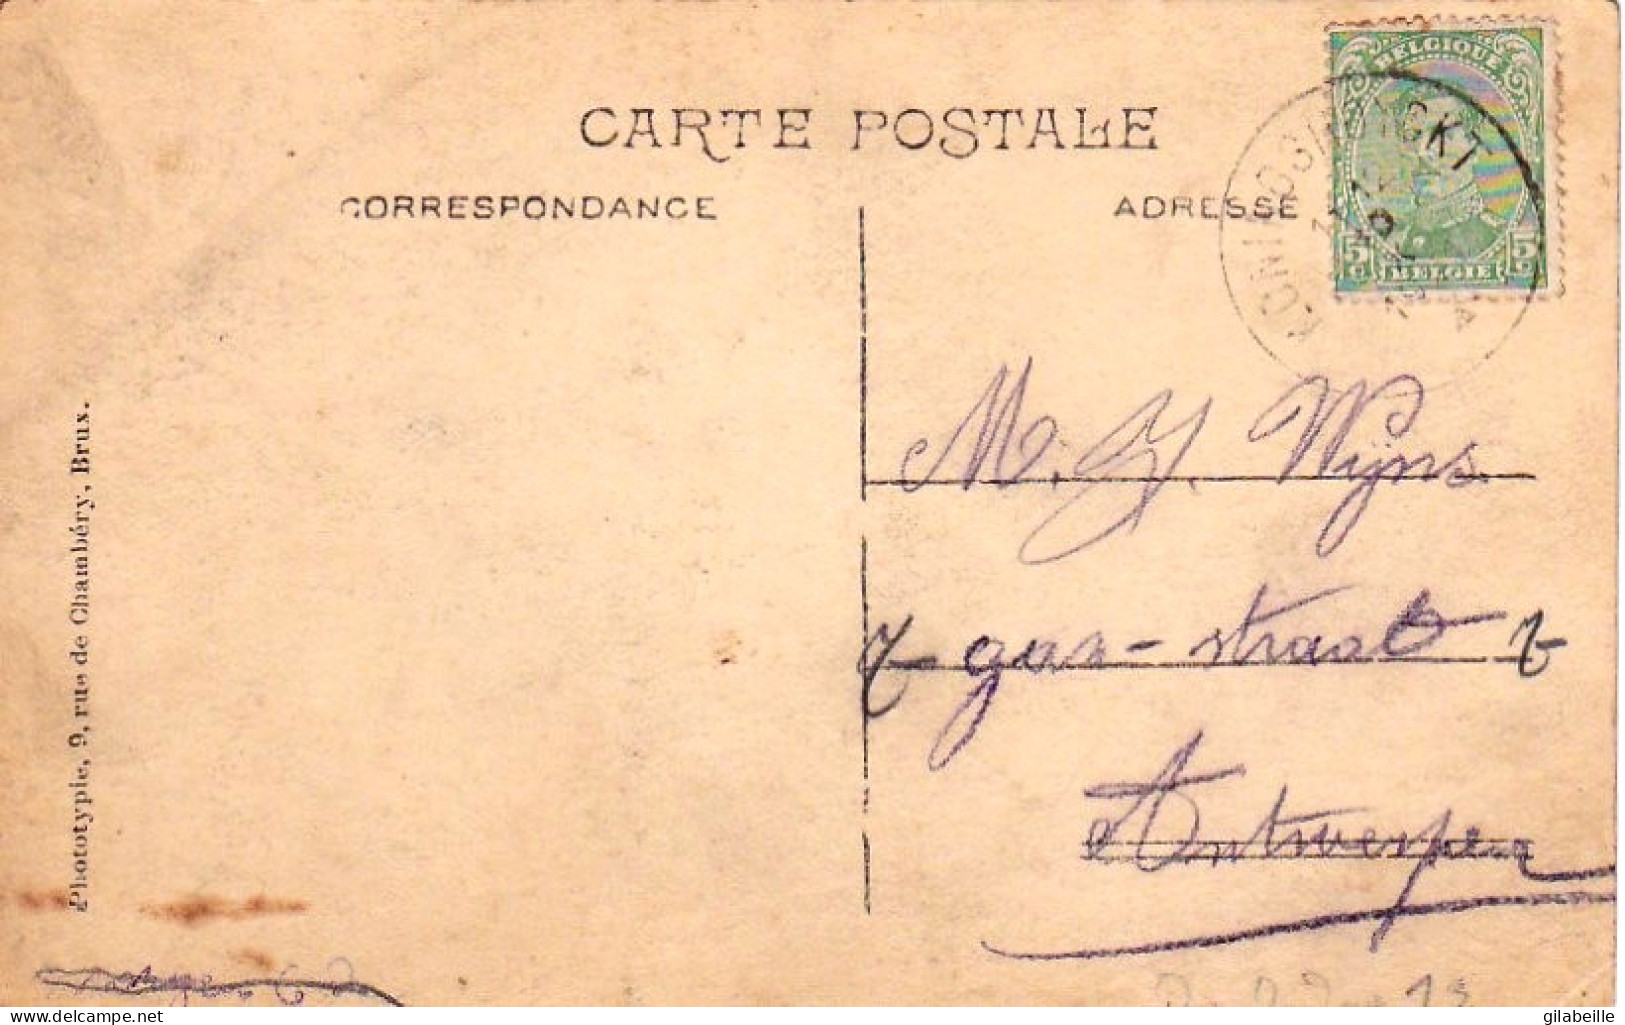 CARTE POSTALE
CORRESPONDANCE
ADRESSE
BELGIQUE
5c BELGIE 5c
M. Y. Wijns
gaz-straat 7
Antwerpen
Phototypie, 9, rue de Chambéry, Brux.
delcampe.net
gilabeille